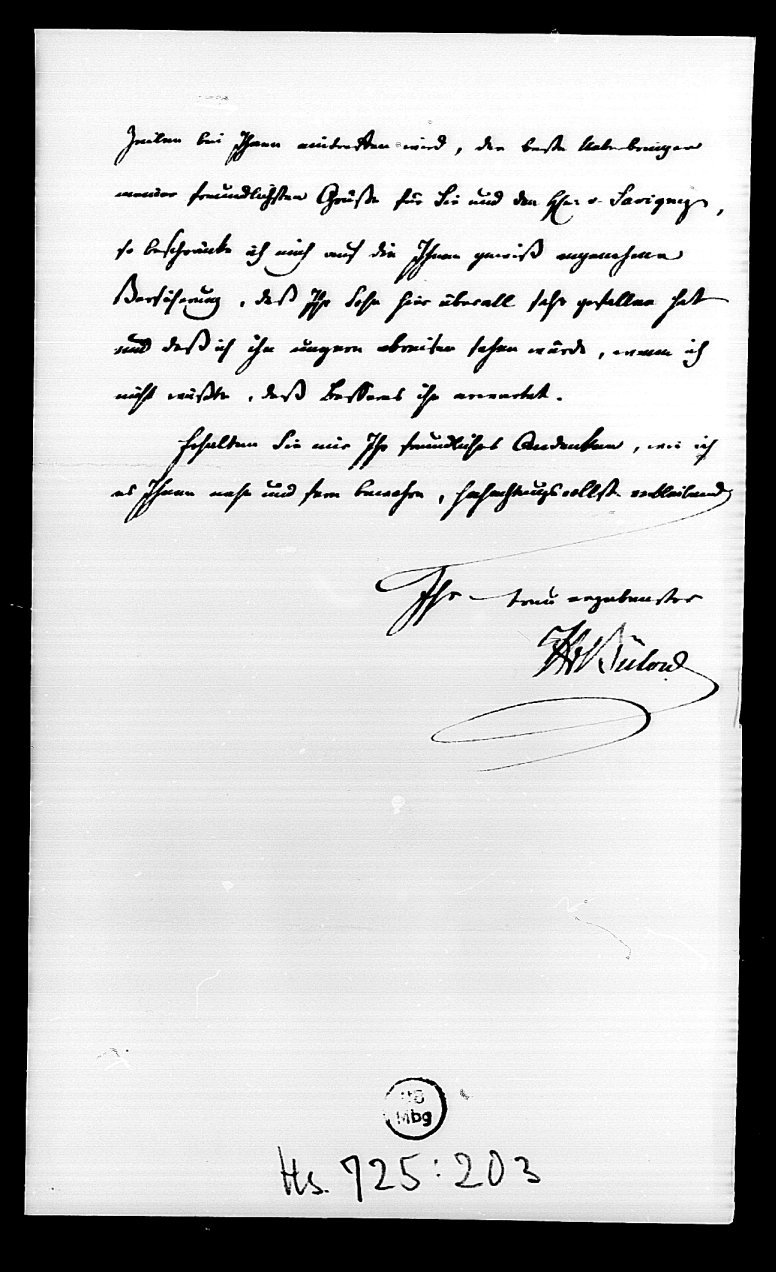 Zeilen bei Ihnen eintreffen wird, der beste Ueberbringer
meiner freundlichsten Grüße für Sie und den v. Savigny,
so beschränke ich mich auf die Ihnen gewiß angenehme
Versicherung, daß Ihr Sohn hier überall sehr gefallen hat
und daß ich ihn ungern abreisen sehen würde, wenn ich
nicht wüßte, daß Besseres ihn erwartet.
Erhalten Sie mir Ihr freundliches Andenken, wie ich
es Ihnen nah und fern bewahre, hochachtungsvollst verbleibend
Ihr treu ergebenster
Bülow
UB
Mbg
Hs. 725:203